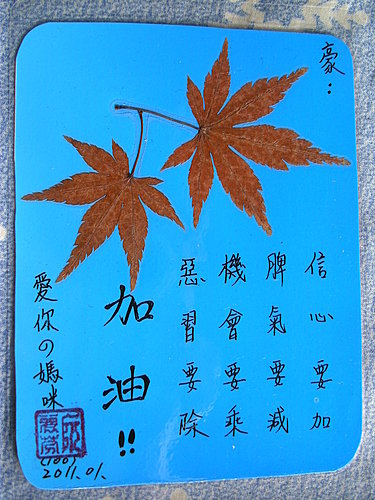 豪：
信心要加
脾氣要減
機會要乘
惡習要除
加油!!
愛你の媽咪
(100)
2011.01.